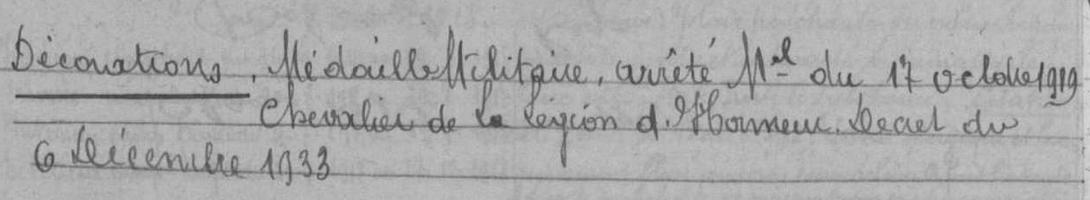 Décorations. Médaille Militaire, arrêté Mel du 17 octobre 1919
Chevalier de la Légion d'Honneur. Décret du
6 Décembre 1933